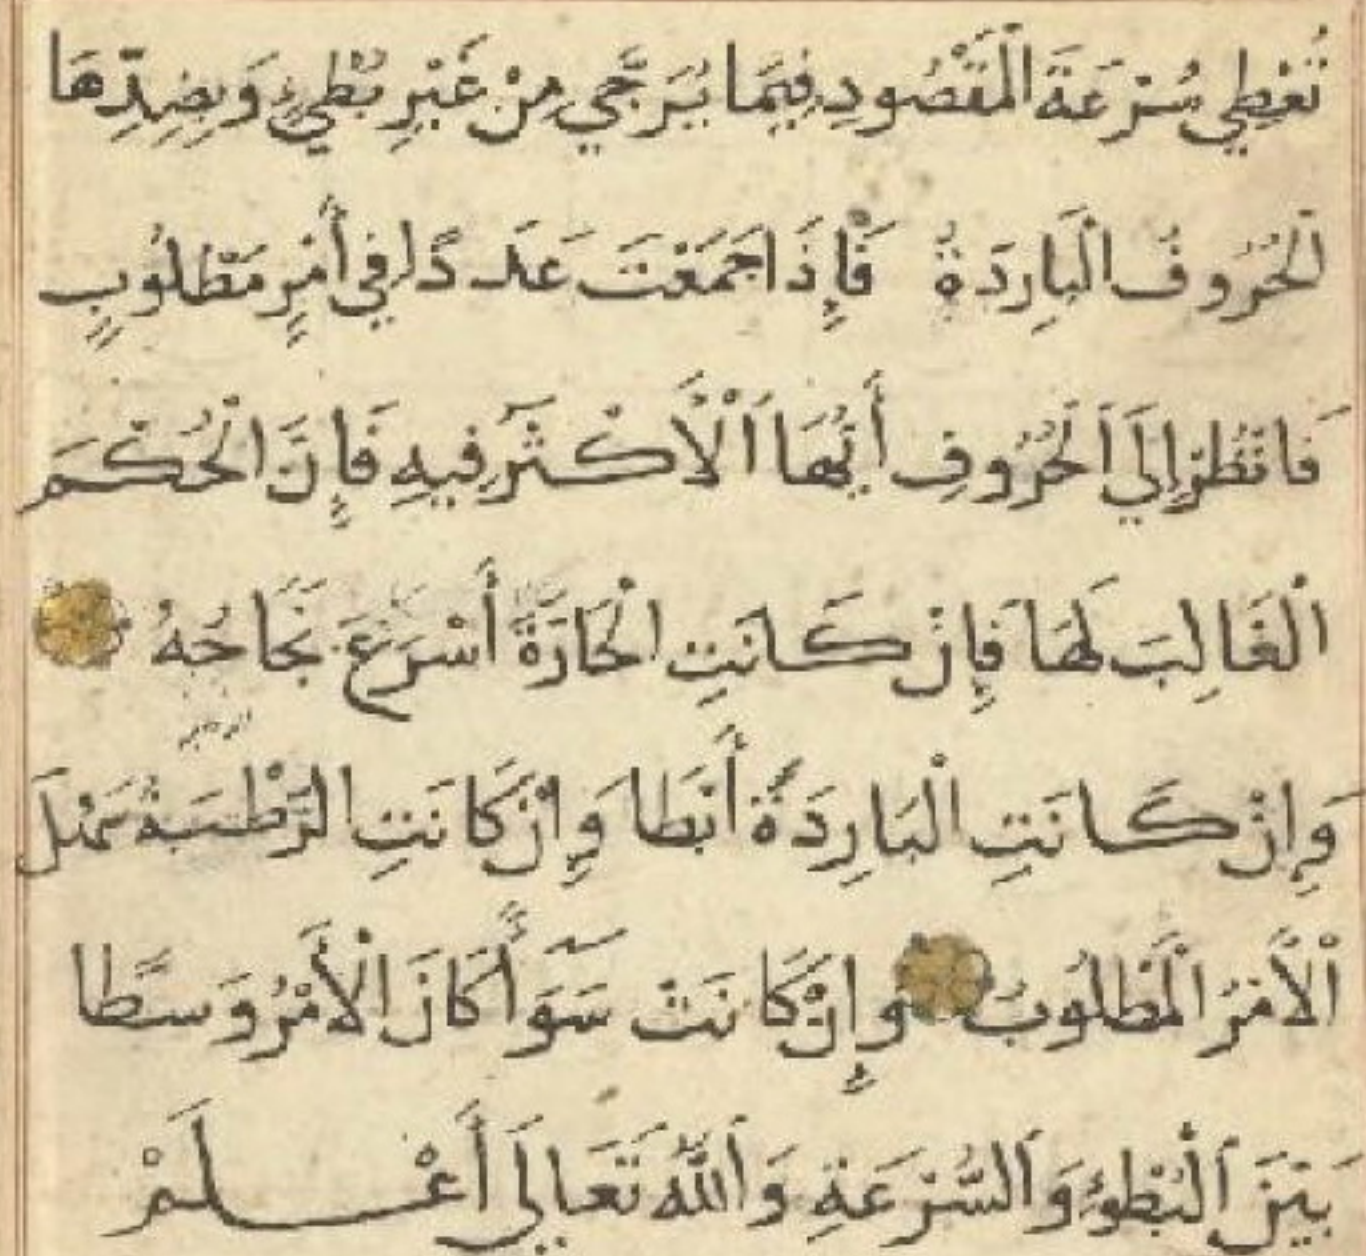 تُعْطِي سُرْعَةَ الْمَقْصُودِ فِيمَا يُرَجَّي مِنْ غَيْرِ بُطْيءٍ وَبِضِدِّهَا
الْحُرُوفُ الْبَارِدَةُ فَإِذَا جَمَعْتَ عَدَدًا فِي أَمْرٍ مَطْلُوبٍ
فَانْظُرْ إِلَي الْحُرُوفِ أَيُّهَا الْأَكْثَرُ فِيهِ فَإِنَّ الْحُكْمَ
الْغَالِبَ لَهَا فَإِنْ كَانَتِ الْحَارَّةُ أَسْرَعَ نَجَاحُهُ
وَإِنْ كَانَتِ الْبَارِدَةُ أَبْطَا وَإِنْ كَانَتِ الرَّطْبَةُ سَهُلَ
الْأَمْرُ الْمَطْلُوبُ وَإِنْ كَانَتْ سَوَآءً كَانَ الْأَمْرُ وَسَطًا
بَيْنَ الْبُطْوءِ وَالسُّرْعَةِ وَاللَّهُ تَعَالَي أَعْلَمْ